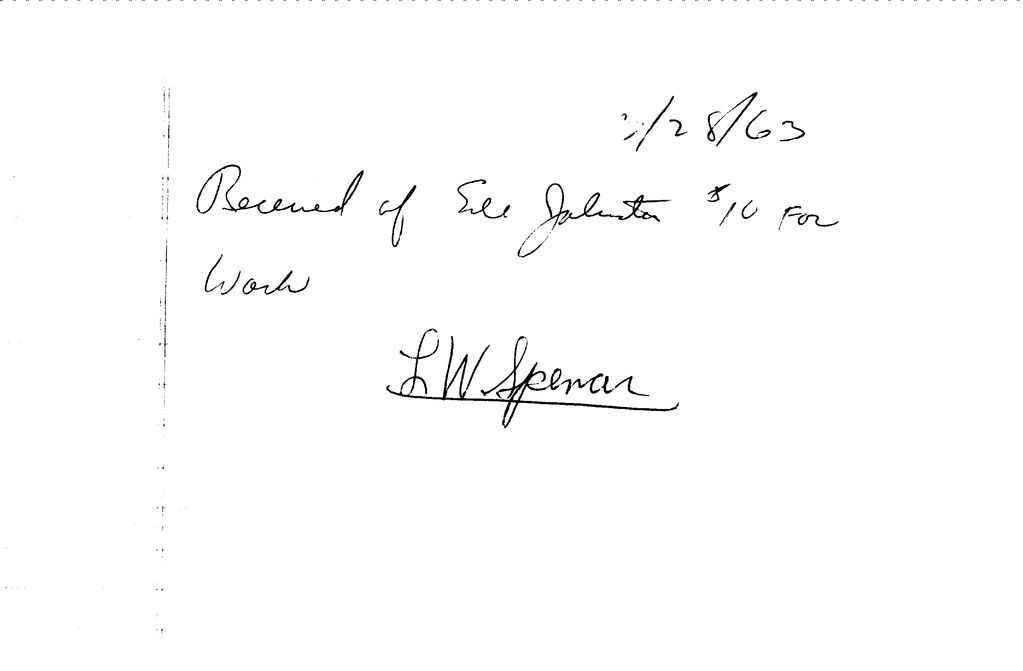 /28/63
Received of Johnston $10 For
Work
L W Spencer